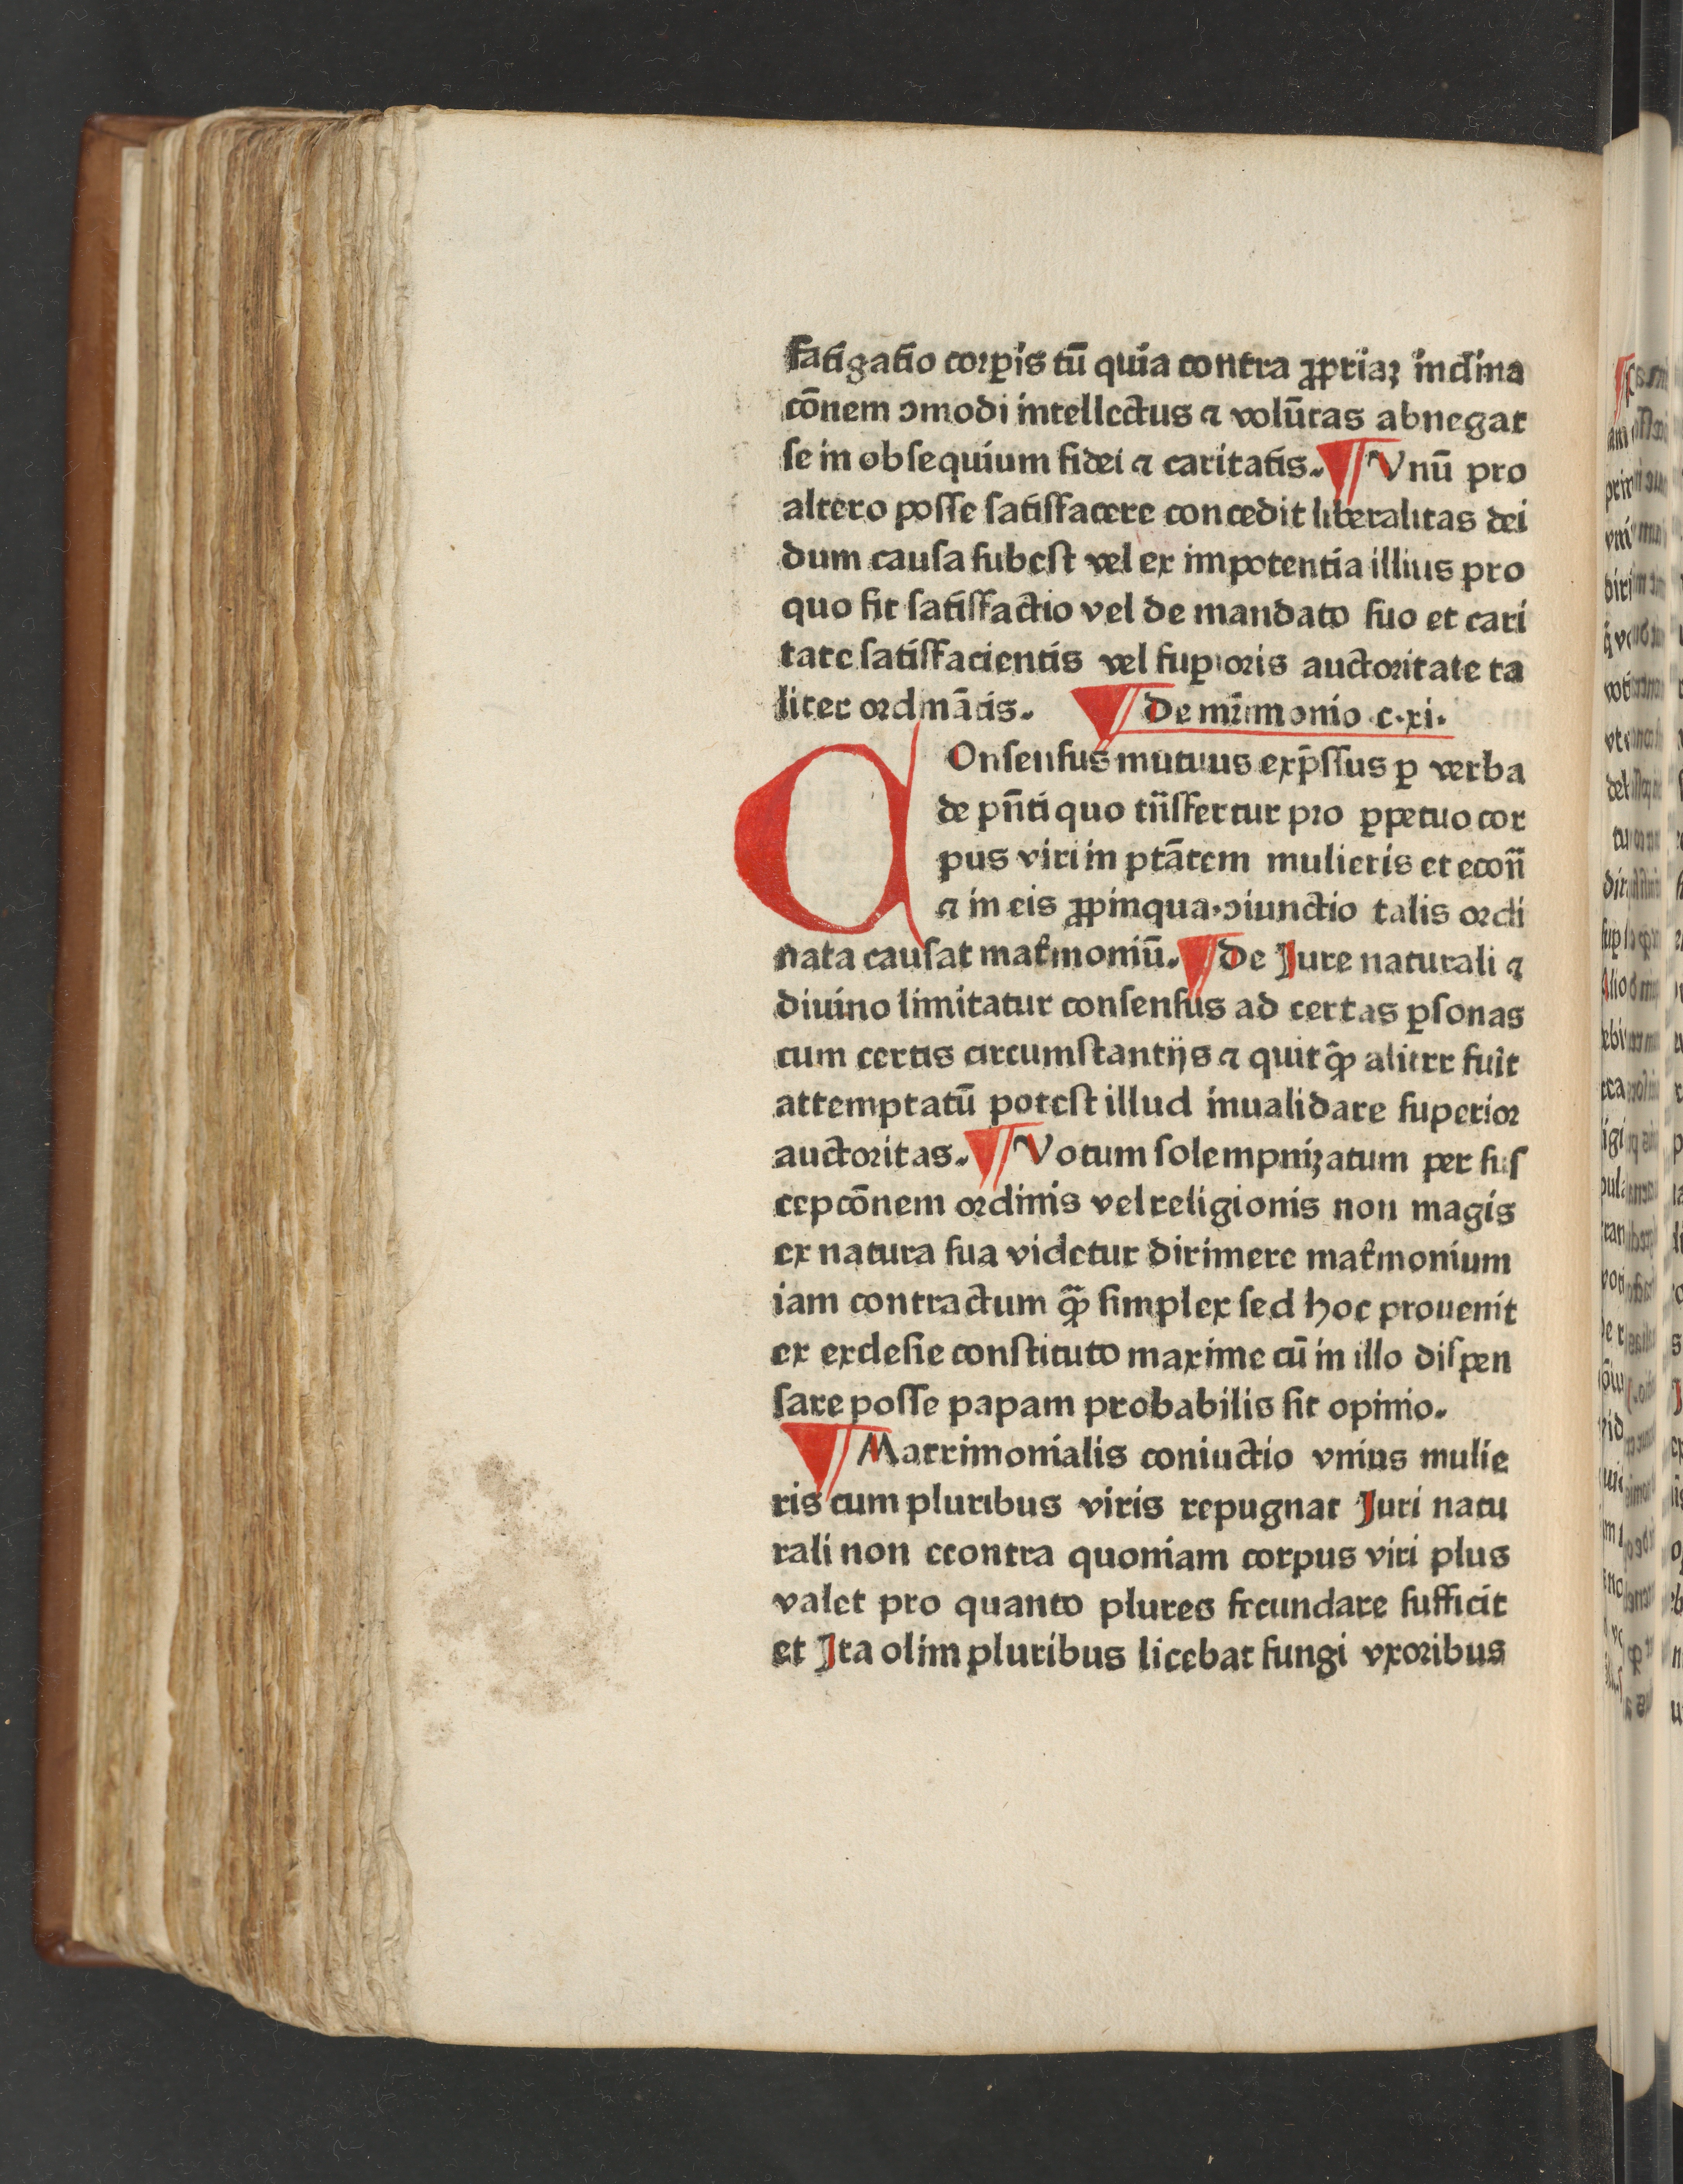 fatigatio corꝑis tū quia contra ꝓpriaꝫ inclina
cōnem ɔmodi intellectus ⁊ volūtas abnegat
se in obsequium fidei ⁊ caritatis. ¶ Vnū pro
altero posse satisfacere concedit liberalitas dei
dum causa subest vel ex impotentia illius pro
quo fit satisfactio vel de mandato suo et cari
tate satisfacientis vel suꝑioris auctoritate ta
liter ordināris. ¶ De mr̄imonio c. xi.
COnsensus mutuus exp̄ssus ꝑ verba
de pn̄ti quo tn̄sfertur pro ꝑpetuo cor
pus viri in ptātem mulieris et econ̄
⁊ in eis ꝓpinqua. ɔiunctio talis ordi
nata causat mat̄moniū. ¶ De Jure naturali ⁊
diuino limitatur consensus ad certas ꝑsonas
cum certis circumstantijs ⁊ quitq̄ aliter fuit
attemptatū potest illud inualidare superior
auctoritas. ¶ Votum solempnizatum per sus
cepcōnem ordinis vel religionis non magis
ex natura sua videtur dirimere mat̄monium
iam contractum q̄ simplex sed hoc prouenit
ex exclesie constituto maxime cū in illo dispen
sare posse papam probabilis sit opinio.
¶ Matrimonialis coniuctio vnius mulie
ris cum pluribus viris repugnat Juri natu
rali non econtra quoniam corpus viri plus
valet pro quanto plures fecundare sufficit
et Ita olim pluribus licebat fungi vxoribus